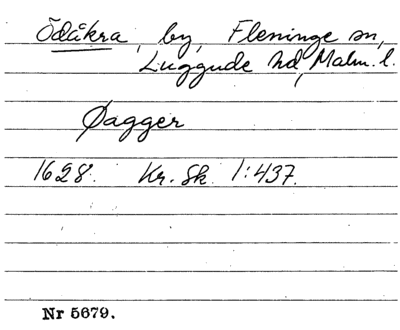 Ödåkra, by, Fleninge sn,
Luggude hd, Malm. l.
Øagger
1628. Kr. Sk. 1:437.
Nr 5679.